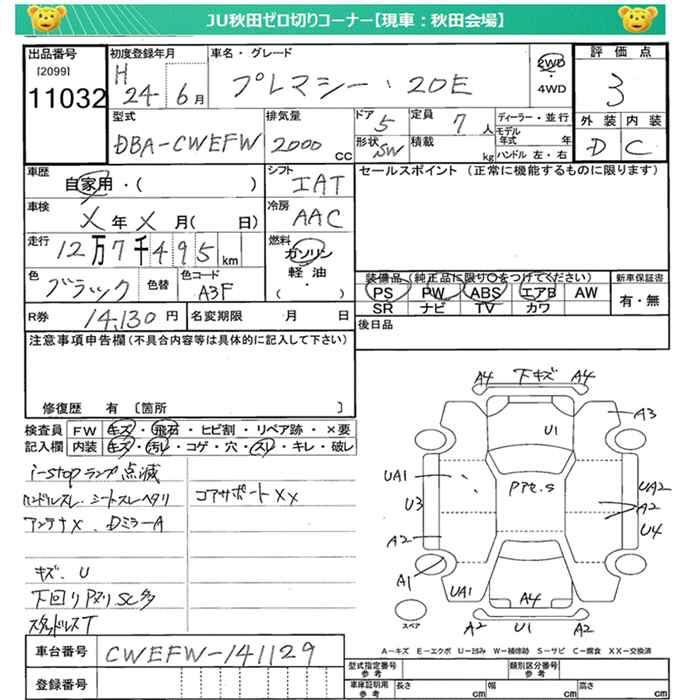 JU秋田ゼロ切りコーナー【現車：秋田会場】
出品番号
[2099]
11032
初度登録年月
H 24 6月
車名・グレード
プレマシー・20E
2WD
・
4WD
評価点
3
外装 内装
D C
型式
DBA-CWEFW
排気量
2000 cc
ドア 5
形状 SW
定員 7 人
積載 kg
ディーラー・並行
モデル年式 年
ハンドル 左・右
車歴
自家用・( )
シフト
IAT
セールスポイント (正常に機能するものに限ります)
車検
X 年 X 月( 日)
冷房
AAC
走行
12万7千495 km
燃料
ガソリン
軽油
( )
色
ブラック
色替
色コード
A3F
装備品(純正品に限り○をつけてください)
PS PW ABS エアB AW
SR ナビ TV カワ
新車保証書
有・無
R券 14,130 円
名変期限 月 日
後日品
注意事項申告欄(不具合内容等は具体的に記入して下さい)
修復歴 有 〔箇所 〕
検査員記入欄
FW キズ・飛石・ヒビ割・リペア跡・×要
内装 キズ・汚レ・コゲ・穴・スレ・キレ・破レ
i-stopランプ点滅
ハンドルスレ.シートスレヘタリ
コアサポートXX
アンテナX.DミラーA
キズ.U
下回りPヌリSC多
スタッドレスT
A4 下キズ A4
A3
U1
UA1
U3
Pアt.S
UA2
A2
U4
A2
A1
UA1
A4
A2 U1 A2
スペア
A-キズ E-エクボ U-凹み W-補修跡 S-サビ C-腐食 XX-交換済
車台番号
CWEFW-141129
登録番号
型式指定番号 参考
類別区分番号 参考
車庫証明用 参考
長さ cm
幅 cm
高さ cm